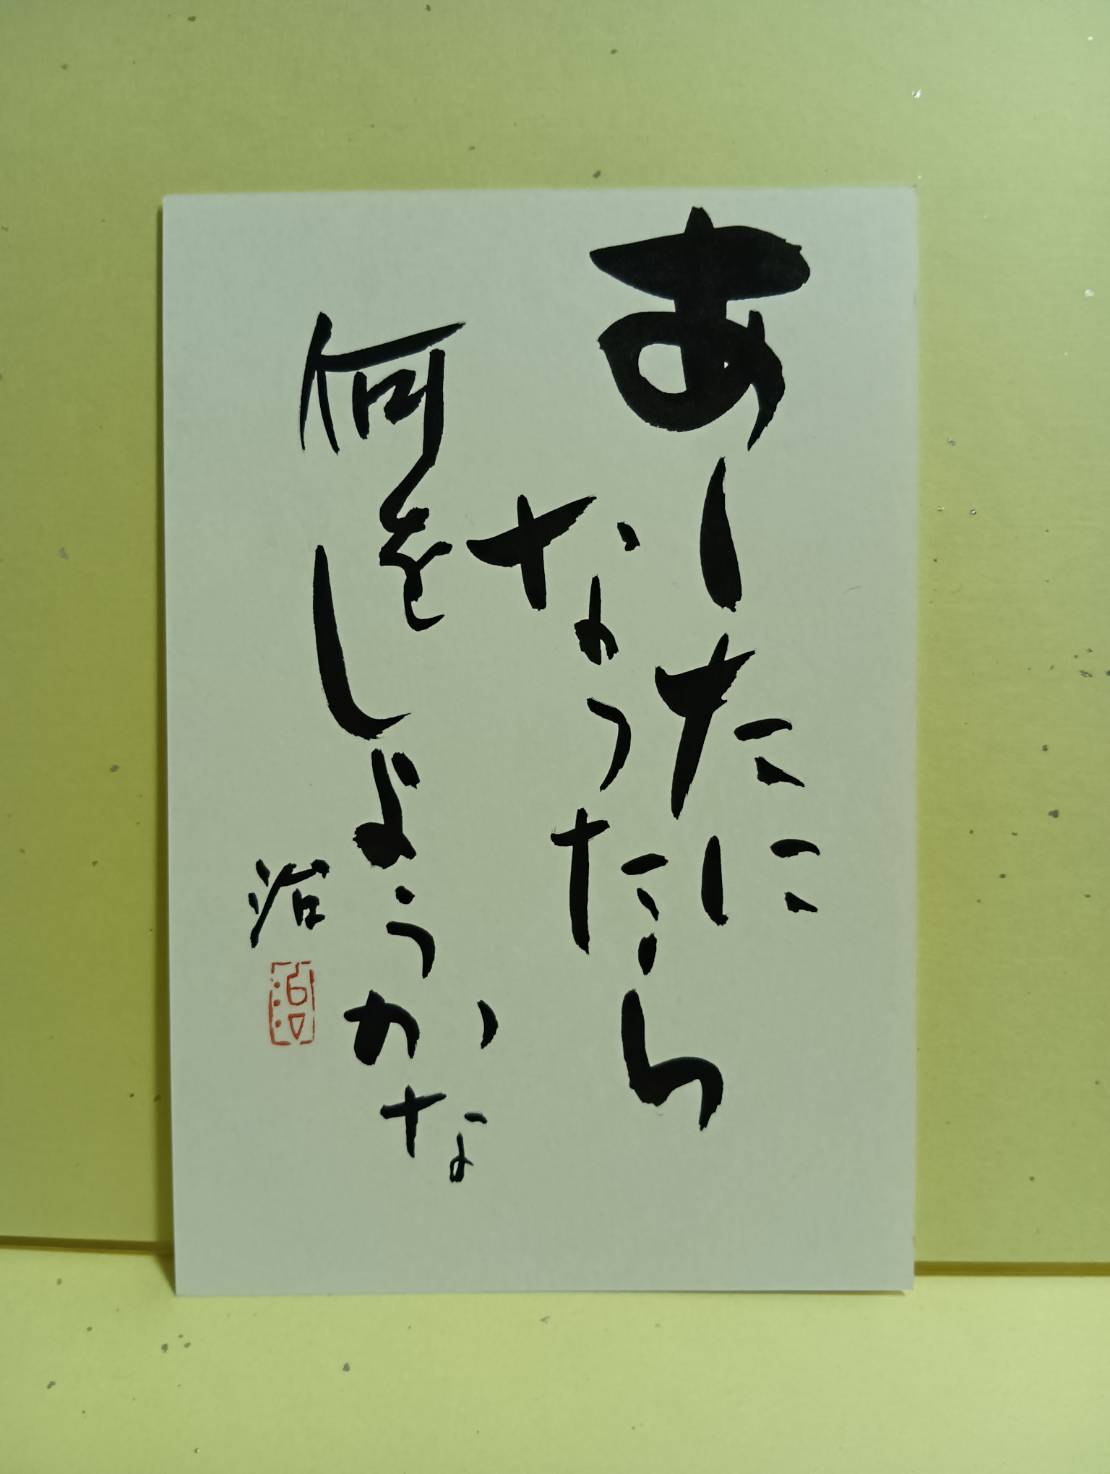 あーたに
なったら
何をしようかな
治
治